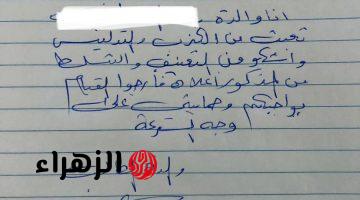 انا والدة
تعبت من الكذب والتدليس
وانشكو من التعنيف والتسلط
من المذكور اعلاه فأرجوا القيام
بواجبكم وحمايتي على
وجه السرعة
الزهراء